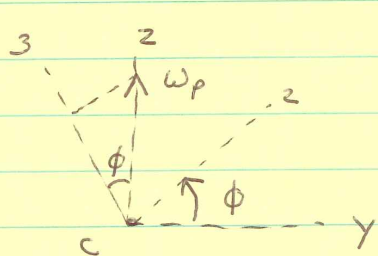 3 z
ωp
2
ϕ
ϕ
C
Y